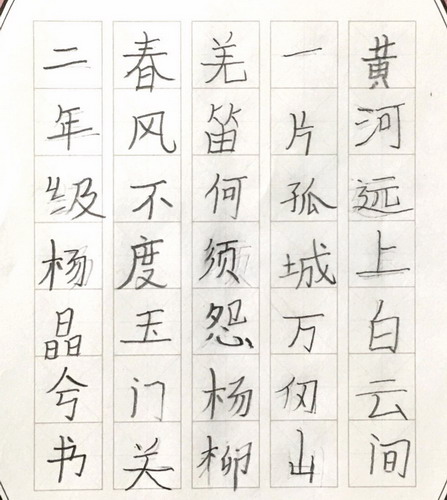 黄河远上白云间
一片孤城万仞山
羌笛何须怨杨柳
春风不度玉门关
二年级杨晶兮书